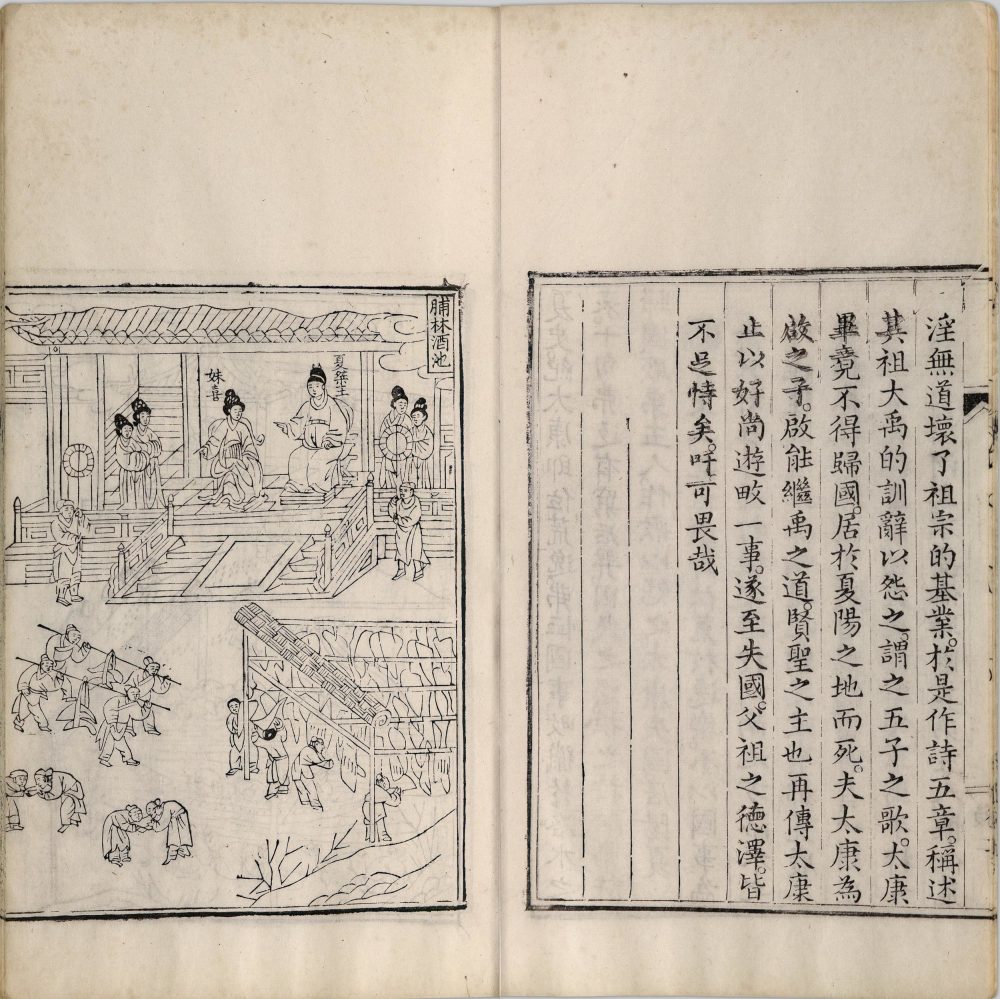 淫無道壞了祖宗的基業。於是作詩五章。稱述
其祖大禹的訓辭以怨之。謂之五子之歌。太康
畢竟不得歸國。居於夏陽之地而死。夫太康為
啟之子。啟能繼禹之道。賢聖之主也再傳太康
止以好尚遊畋一事。遂至失國。父祖之德澤。皆
不足恃矣。吁可畏哉
脯林酒池
夏桀王
妹喜